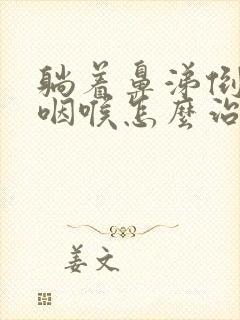 躺着鼻涕倒
咽喉怎麼治
姜文